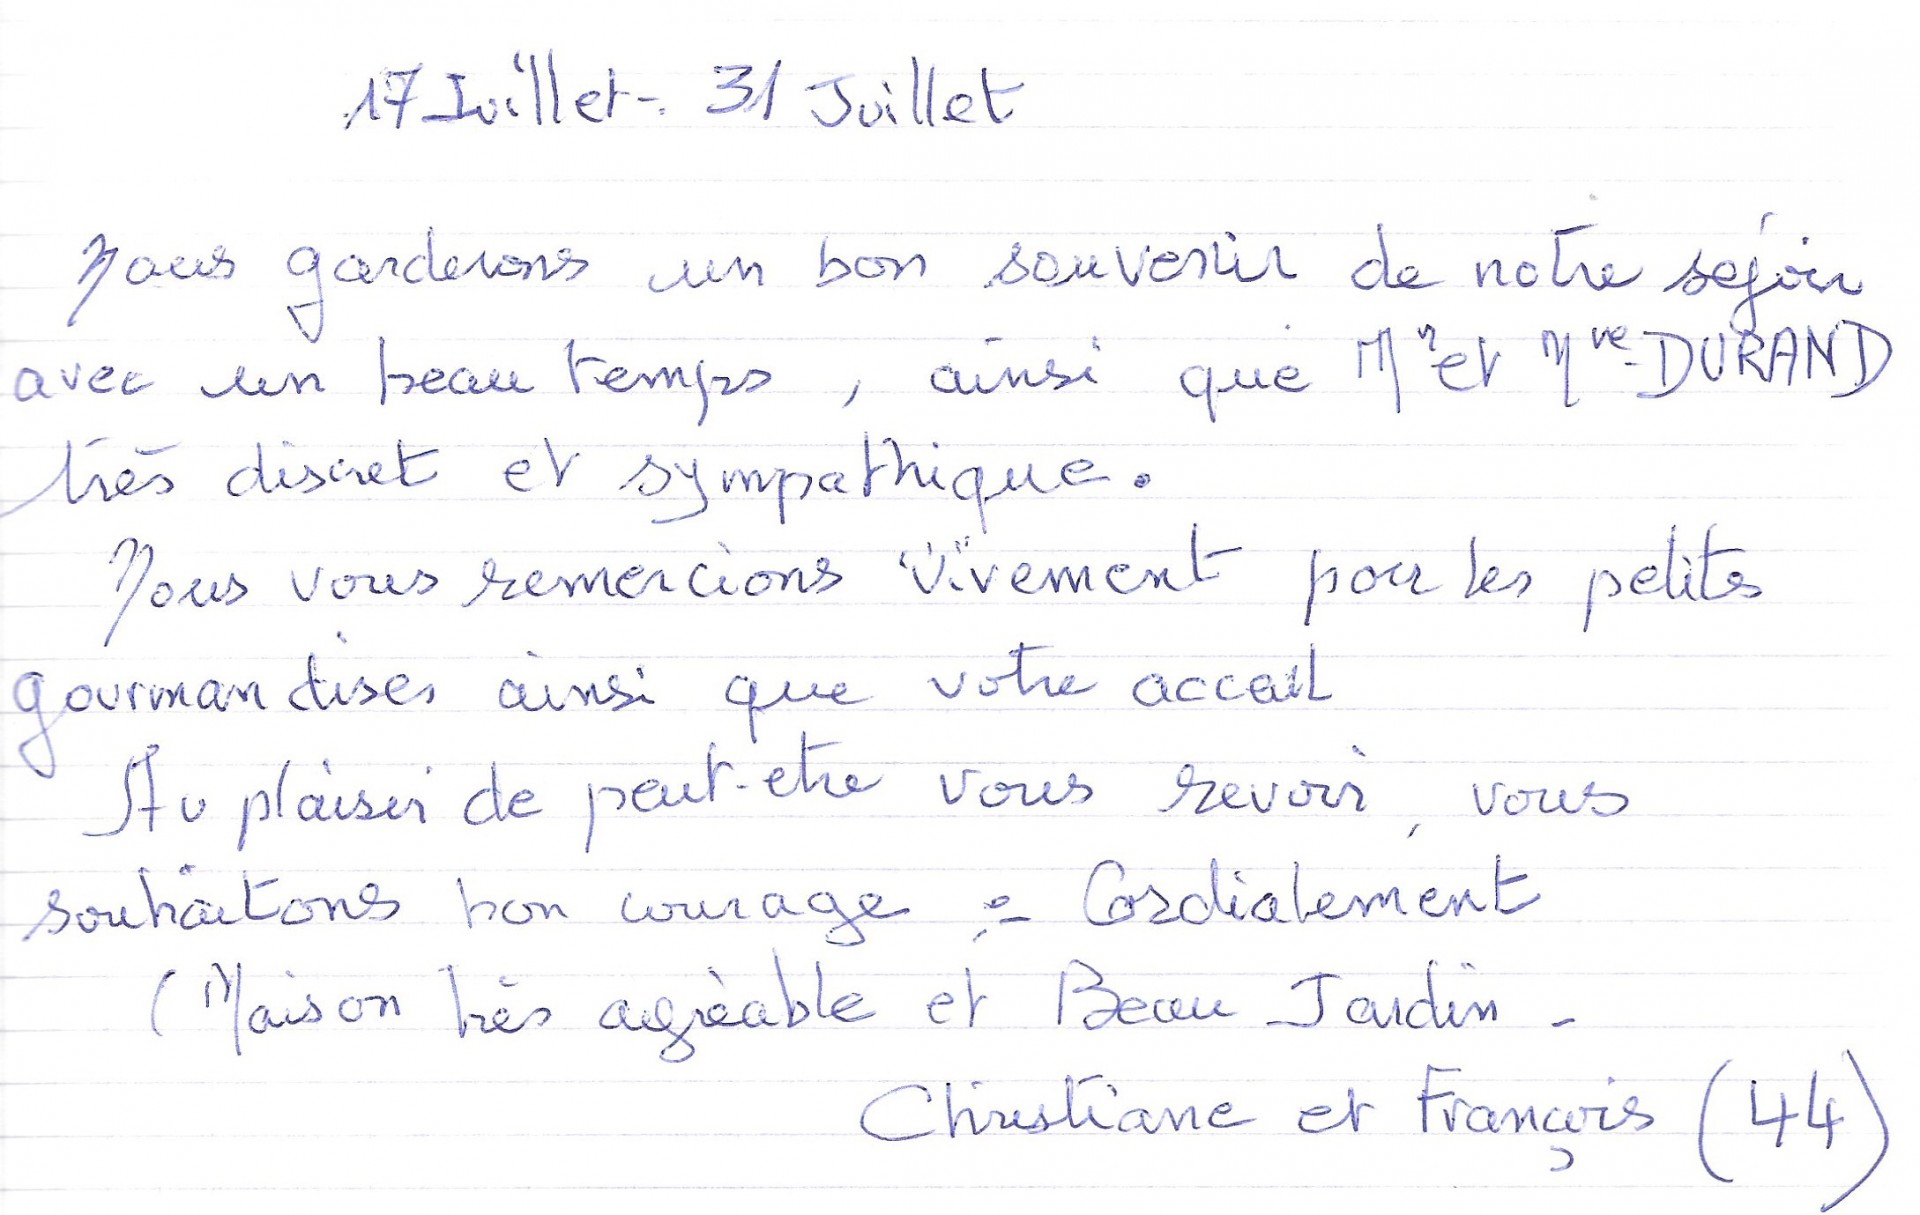 17 Juillet - 31 Juillet
Nous garderons un bon souvenir de notre séjour
avec un beau temps, ainsi que Mr et Mme DURAND
très discret et sympathique.
Nous vous remercions vivement pour les petites
gourmandises ainsi que votre accueil
Au plaisir de peut-etre vous revoir, vous
souhaitons bon courage - Cordialement
(Maison très agréable et Beau Jardin -
Christiane et François (44)